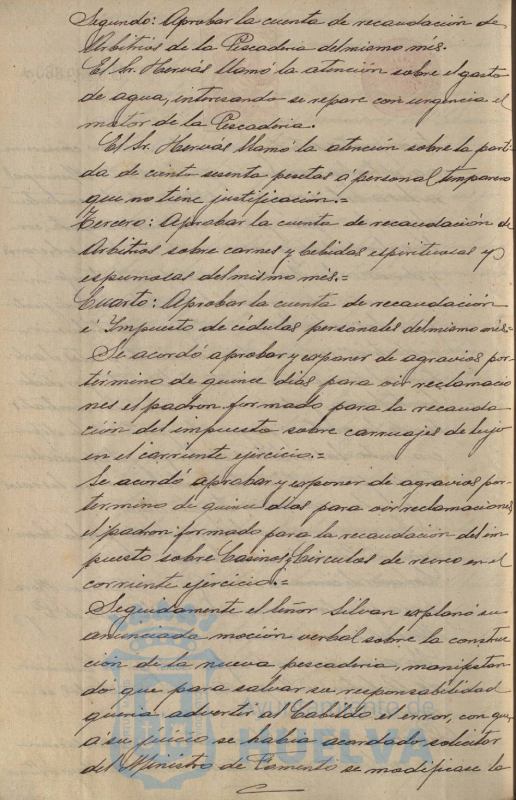 Segundo: Aprobar la cuenta de recaudación de
Arbitrios de la Pescaderia del mismo mes.
El Sr. Hervás llamó la atención sobre el gasto
de agua, interesando se repare con urgencia el
motor de la Pescaderia.
El Sr. Hervás llamó la atención sobre la parti-
da de ciento sesenta pesetas á personal temporero
que no tiene justificación.=
Tercero: Aprobar la cuenta de recaudación de
Arbitrios sobre carnes y bebidas espirituosas y
espumosas del mismo mes.=
Cuarto: Aprobar la cuenta de recaudación
é Impuesto de cédulas personales del mismo mes=
Se acordó aprobar y exponer de agravios por-
término de quince dias para oir reclamacio
nes el padron formado para la recauda
ción del impuesto sobre carruajes de lujo
en el corriente ejercicio.=
Se acordó aprobar y exponer de agravios por-
termino de quince días para oir reclamaciones,
el padron formado para la recaudación del im
puesto sobre Casinos y Circulos de recreo en el
corriente ejercicio.=
Seguidamente el Señor Silvan explanó su
anunciada moción verbal sobre la construc
ción de la nueva pescaderia, manifestan
do que para salvar su responsabilidad
queria advertir al Cabildo el error, con que,
á su juicio se habia acordado solicitar
del Ministro de Fomento se modificase la
Ayuntamiento de
HUELVA